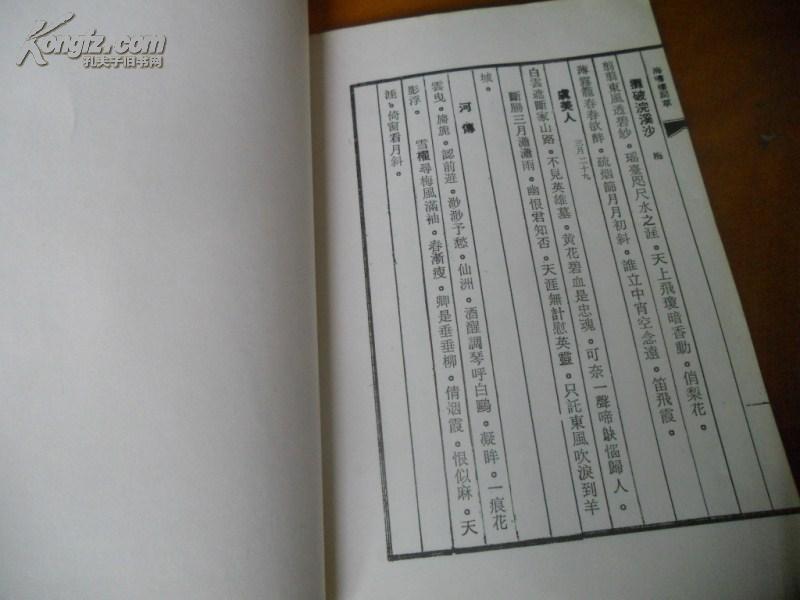 Kongfz.com
孔夫子旧书网
攤破浣溪沙 梅
翦翦東風透碧紗。瑶臺咫尺水之涯。天上飛瓊暗香動。俏梨花。
薄霧籠春春欲醉。疏烟篩月月初斜。誰立中宵空念遠。笛飛霞。
虞美人 三月二十九
白雲遮斷家山路。不見英雄墓。黃花碧血是忠魂。可奈一聲啼鴃惱歸人。
斷腸三月瀟瀟雨。幽恨君知否。天涯無計慰英靈。只託東風吹淚到羊
城。
河傳
雲曳。旖旎。認前遊。渺渺予愁。仙洲。酒醒調琴呼白鷗。凝眸。一痕花
影浮。 雪櫂尋梅風滿袖。春漸瘦。卿是垂垂柳。倩烟霞。恨似麻。天
涯。倚窗看月斜。